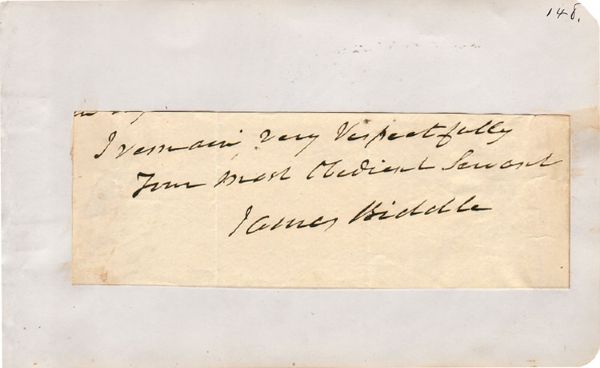 148.
I remain, very Respectfully
Your most Obedient Servant
James Biddle